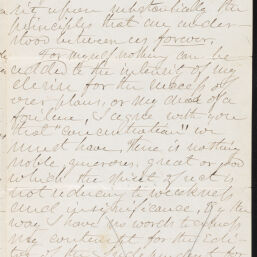 sit upon substantially the
principles that are under-
stood between us forever.
For myself nothing can be
added to the interest of my
desire for the success of
over plans, or my dread of a
failure, I agree with you
that "concentration" we
must have, there is nothing
noble, generous, great or good
which the spirit of sect is
not reducing to weakness
and insignificance, By the
way I have no words to express
my contempt for the Edi-
tor of the Independent for